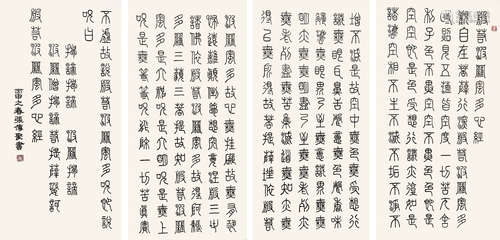 般若波羅蜜多心經
觀自在菩薩行深般若波羅蜜多
時照見五蘊皆空度一切苦厄舍
利子色不異空空不異色色即是
空空即是色受想行識亦復如是
諸法空相不生不滅不垢不淨不
增不減是故空中無色無受想行
識無眼耳鼻舌身意無色聲香味
觸法無眼界乃至無意識界無無
明亦無無明盡乃至無老死亦
無老死盡無苦集滅道無智亦無
得以無所得故菩提薩埵依般若
波羅蜜多故心無罣礙故無有恐
怖遠離顛倒夢想究竟涅槃三世
諸佛依般若波羅蜜多故得阿耨
多羅三藐三菩提故知般若波羅
蜜多是大神咒是大明咒是無上
咒是無等等咒能除一切苦真實
不虛故說般若波羅蜜多咒即說
咒曰
揭諦揭諦 波羅揭諦
波羅僧揭諦菩提薩婆訶
般若波羅蜜多心經
丙申之春張偉書